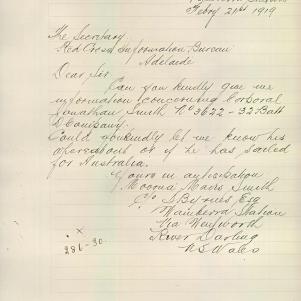 Febry 21st 1919
The Secretary
Red Cross Information Bureau
Adelaide
Dear Sir
Can you kindly give me
information concerning Corporal
Jonathan Smith No 3622 - 32 Batt
D Company.
Could you kindly let me know his
whereabouts or if he has sailed
for Australia.
Yours in anticipation
Smith
C/o S Byrnes Esq
Station
Via Wentworth
River Darling
N S Wales
x
286-30